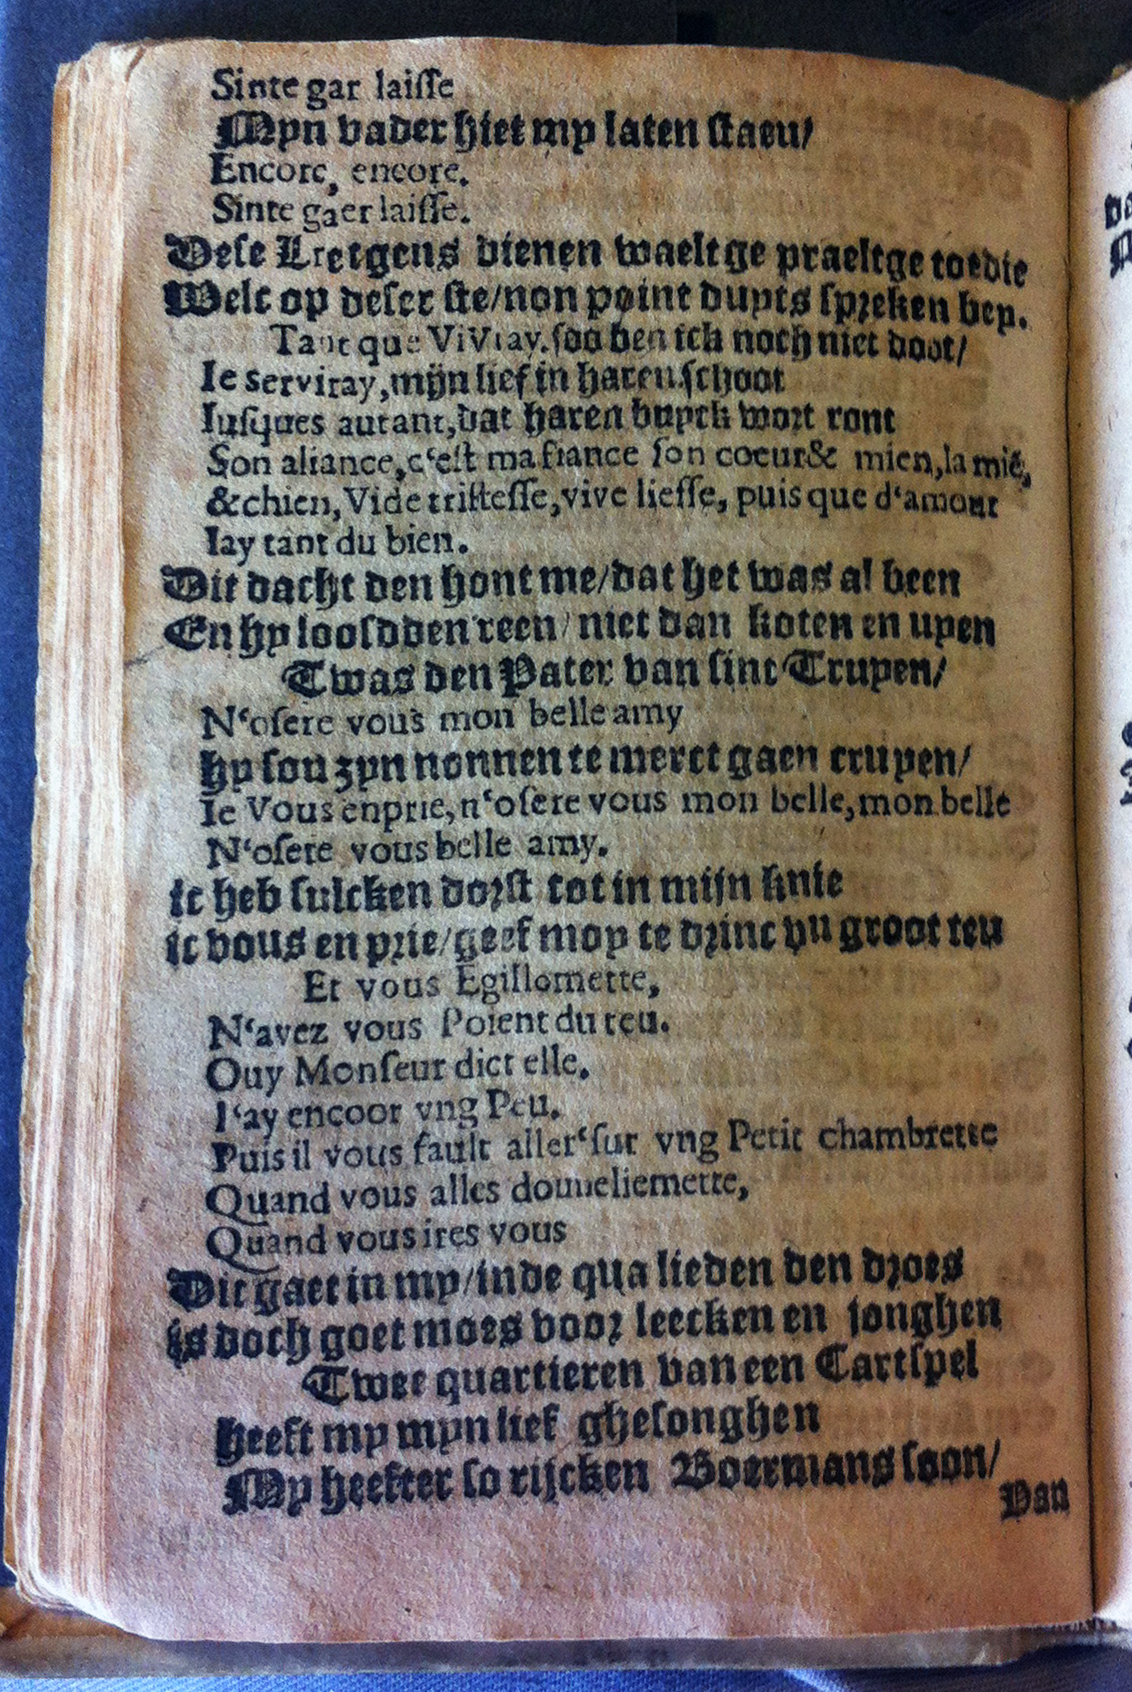 Sinte gar laiſſe
Myn vader hiet my laten ſtaen/
Encore, encore.
Sinte gaer laiſſe.
Deſe Lretgens dienen waeltge praeltge toe die
Welc op deſer ſte/non point duyts ſpreken bey.
Tant que ViVray. ſoo ben ick noch niet doot/
Ie serviray, mijn lief in haren ſchoot
Iuſques autant, dat haren buyck wort ront
Son aliance, c‘eſt ma fiance ſon coeur & mien, la mie,
& chien, Vide triſteſſe, vive lieſſe, puis que d‘amour
Iay tant du bien.
Dit dacht den hont me/dat het was al been
En hy looſdden reen/niet dan koten en uyen
Twas den Pater van ſint Truyen/
N‘oſere vous mon belle amy
hy ſou zyn nonnen te meret gaen cruyen/
Ie Vous enprie, n‘oſere vous mon belle, mon belle
N‘oſere vous belle amy.
ic heb ſulcken dorſt tot in mijn knie
ic vous en prie/geef moy te drinc yu groot teu
Et vous Egillomette,
N‘avez vous Poient du teu.
Ouy Monſeur dict elle.
I‘ay encoor vng Peu.
Puis il vous fault aller‘ſur vng Petit chambrette
Quand vous alles douneliemette,
Quand vous ires vous
Dit gaet in my/inde qua lieden den droes
is doch goet moes voor leecken en jonghen
Twee quartieren van een Cartſpel
heeft my myn lief gheſonghen
My heefter ſo rijcken Boermans ſoon/
Van